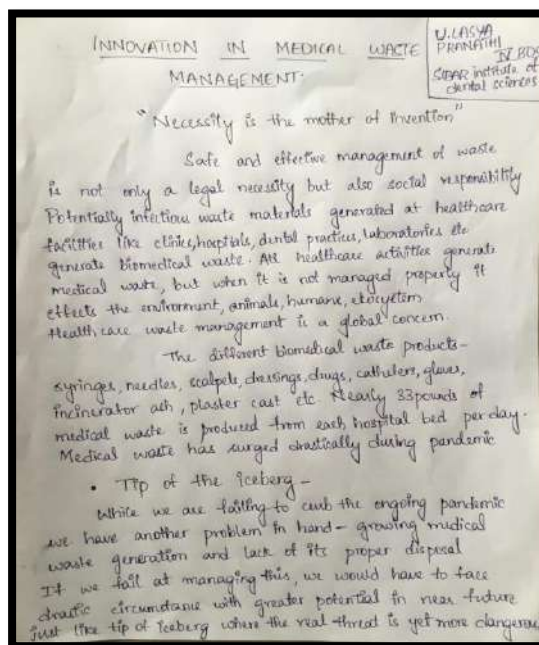 INNOVATION IN MEDICAL WASTE
MANAGEMENT.
U.LASYA
PRANATHI
IV BDS
SIBAR institute of
dental sciences
"Necessity is the mother of invention"
Safe and effective management of waste
is not only a legal necessity but also social responsibility
Potentially infectious waste materials generated at healthcare
facilities like clinics, hosptials, dental practices, laboratories etc
generate biomedical waste. All healthcare activities generate
medical waste, but when it is not managed properly it
effects the environment, animals, humans, ekocystem
Health care waste management is a global concern.
The different biomedical waste products-
syringes, needles, scalpels, dressings, drugs, catheters, gloves,
incinerator ash, plaster cast etc. Nearly 33 pounds of
medical waste is produced from each hospital bed per day.
Medical waste has surged drastically during pandemic
• Tip of the iceberg -
While we are failing to curb the ongoing pandemic
we have another problem in hand - growing medical
waste generation and lack of its proper disposal
If we fail at managing this, we would have to face
drastic circumstance with greater potential in near future
just like tip of iceberg where the real threat is yet more dangerous